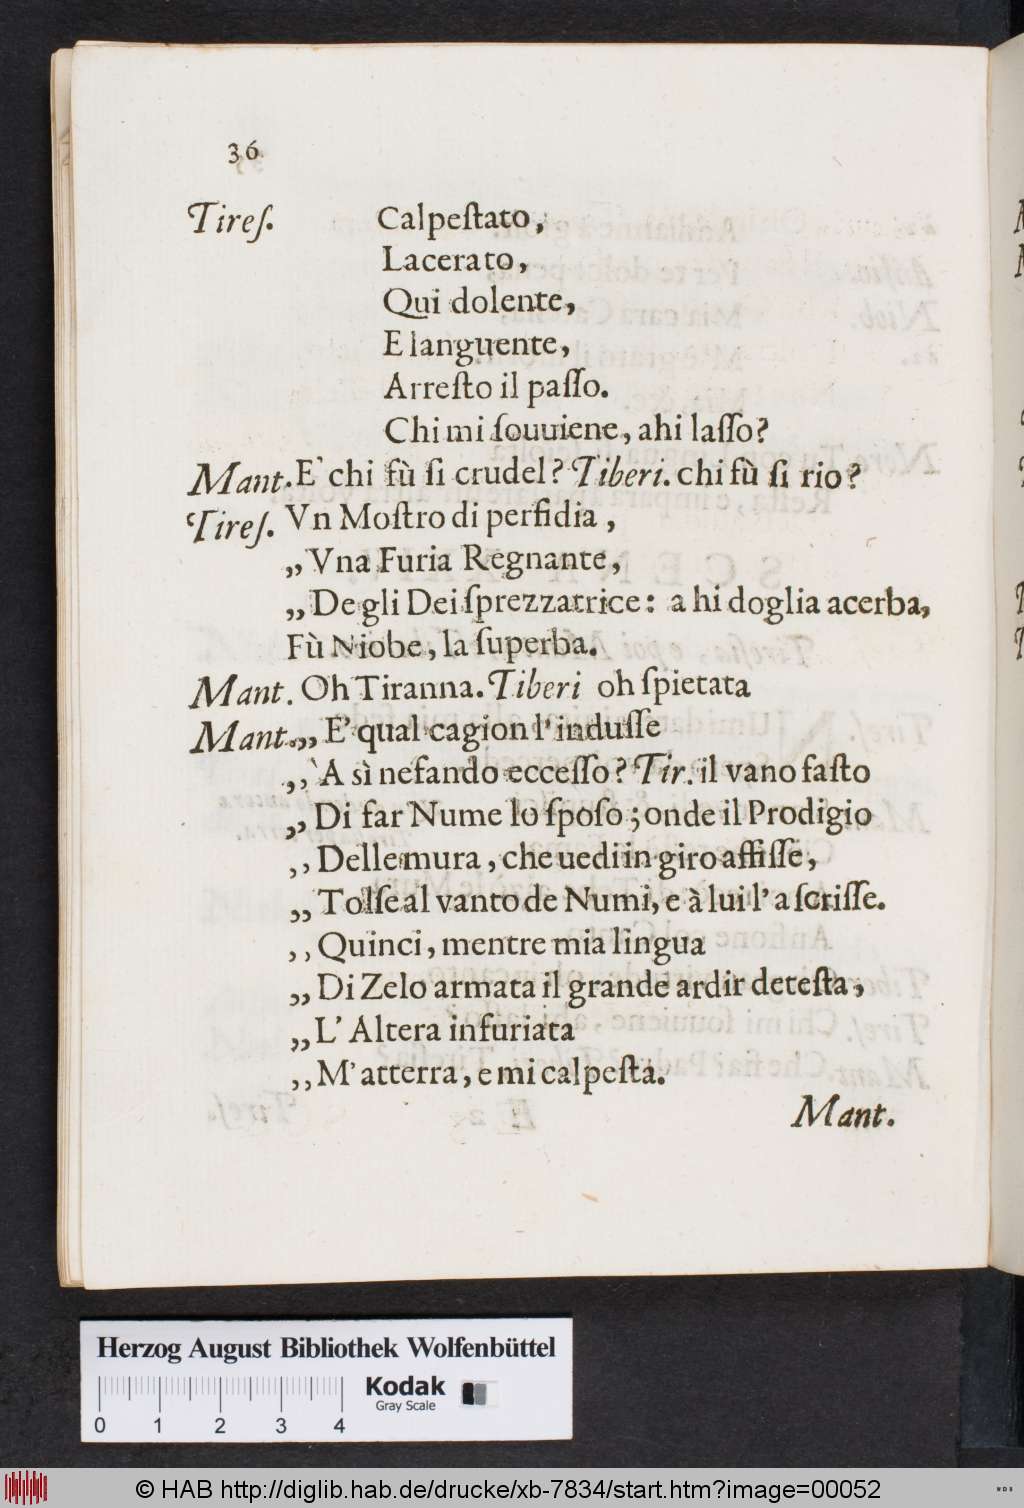 36
Tireſ. Calpeſtato,
Lacerato,
Qui dolente,
E languente,
Arreſto il paſſo.
Chi mi ſouuiene, ahi laſſo?
Mant. E` chi fù ſi crudel? Tiberi. chi fù ſi rio?
Tireſ. Vn Moſtro di perfidia,
„ Vna Furia Regnante,
„ Degli Dei ſprezzatrice: ahi doglia acerba,
Fù Niobe, la ſuperba.
Mant. Oh Tiranna. Tiberi oh ſpietata
Mant. „ E' qual cagion l' induſſe
„ `A sì nefando ecceſſo? Tir. il vano faſto
„ Di far Nume lo ſpoſo; onde il Prodigio
„ Delle mura, che uedi in giro affiſſe,
„ Tolſe al vanto de Numi, e à lui l' aſcriſſe.
„ Quinci, mentre mia lingua
„ Di Zelo armata il grande ardir deteſta,
„ L' Altera infuriata
„ M' atterra, e mi calpeſta.
Mant.
Herzog August Bibliothek Wolfenbüttel
Kodak
Gray Scale
0 1 2 3 4
© HAB http://diglib.hab.de/drucke/xb-7834/start.htm?image=00052